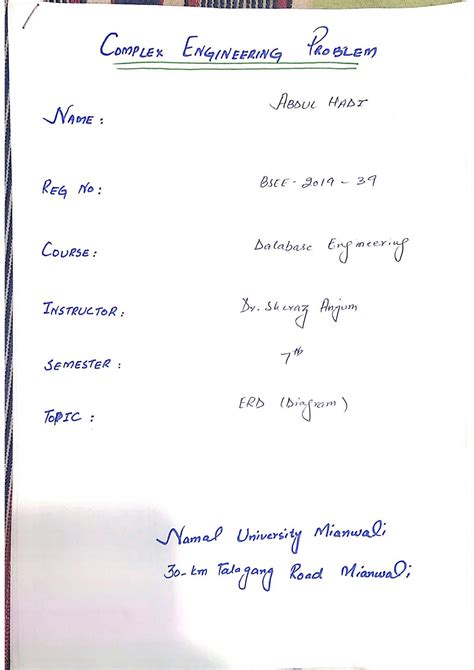 COMPLEX ENGINEERING PROBLEM
NAME : ABDUL HADI
REG NO : BSEE - 2019 - 39
COURSE : Database Engineering
INSTRUCTOR : Dr. Sheraz Anjum
SEMESTER : 7th
TOPIC : ERD (Diagram)
Namal University Mianwali
30-km Talagang Road Mianwali